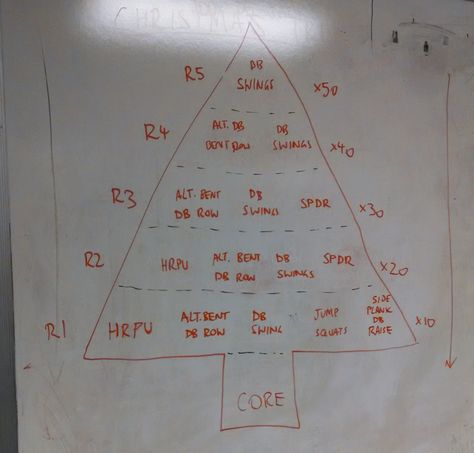 CHRISTMAS
R5
DB
SWINGS
x50
R4
ALT. DB
BENT ROW
DB
SWINGS
x40
R3
ALT. BENT
DB ROW
DB
SWINGS
SPDR
x30
R2
HRPU
ALT. BENT
DB ROW
DB
SWINGS
SPDR
x20
R1
HRPU
ALT. BENT
DB ROW
DB
SWING
JUMP
SQUATS
SIDE
PLANK
DB
RAISE
x10
CORE